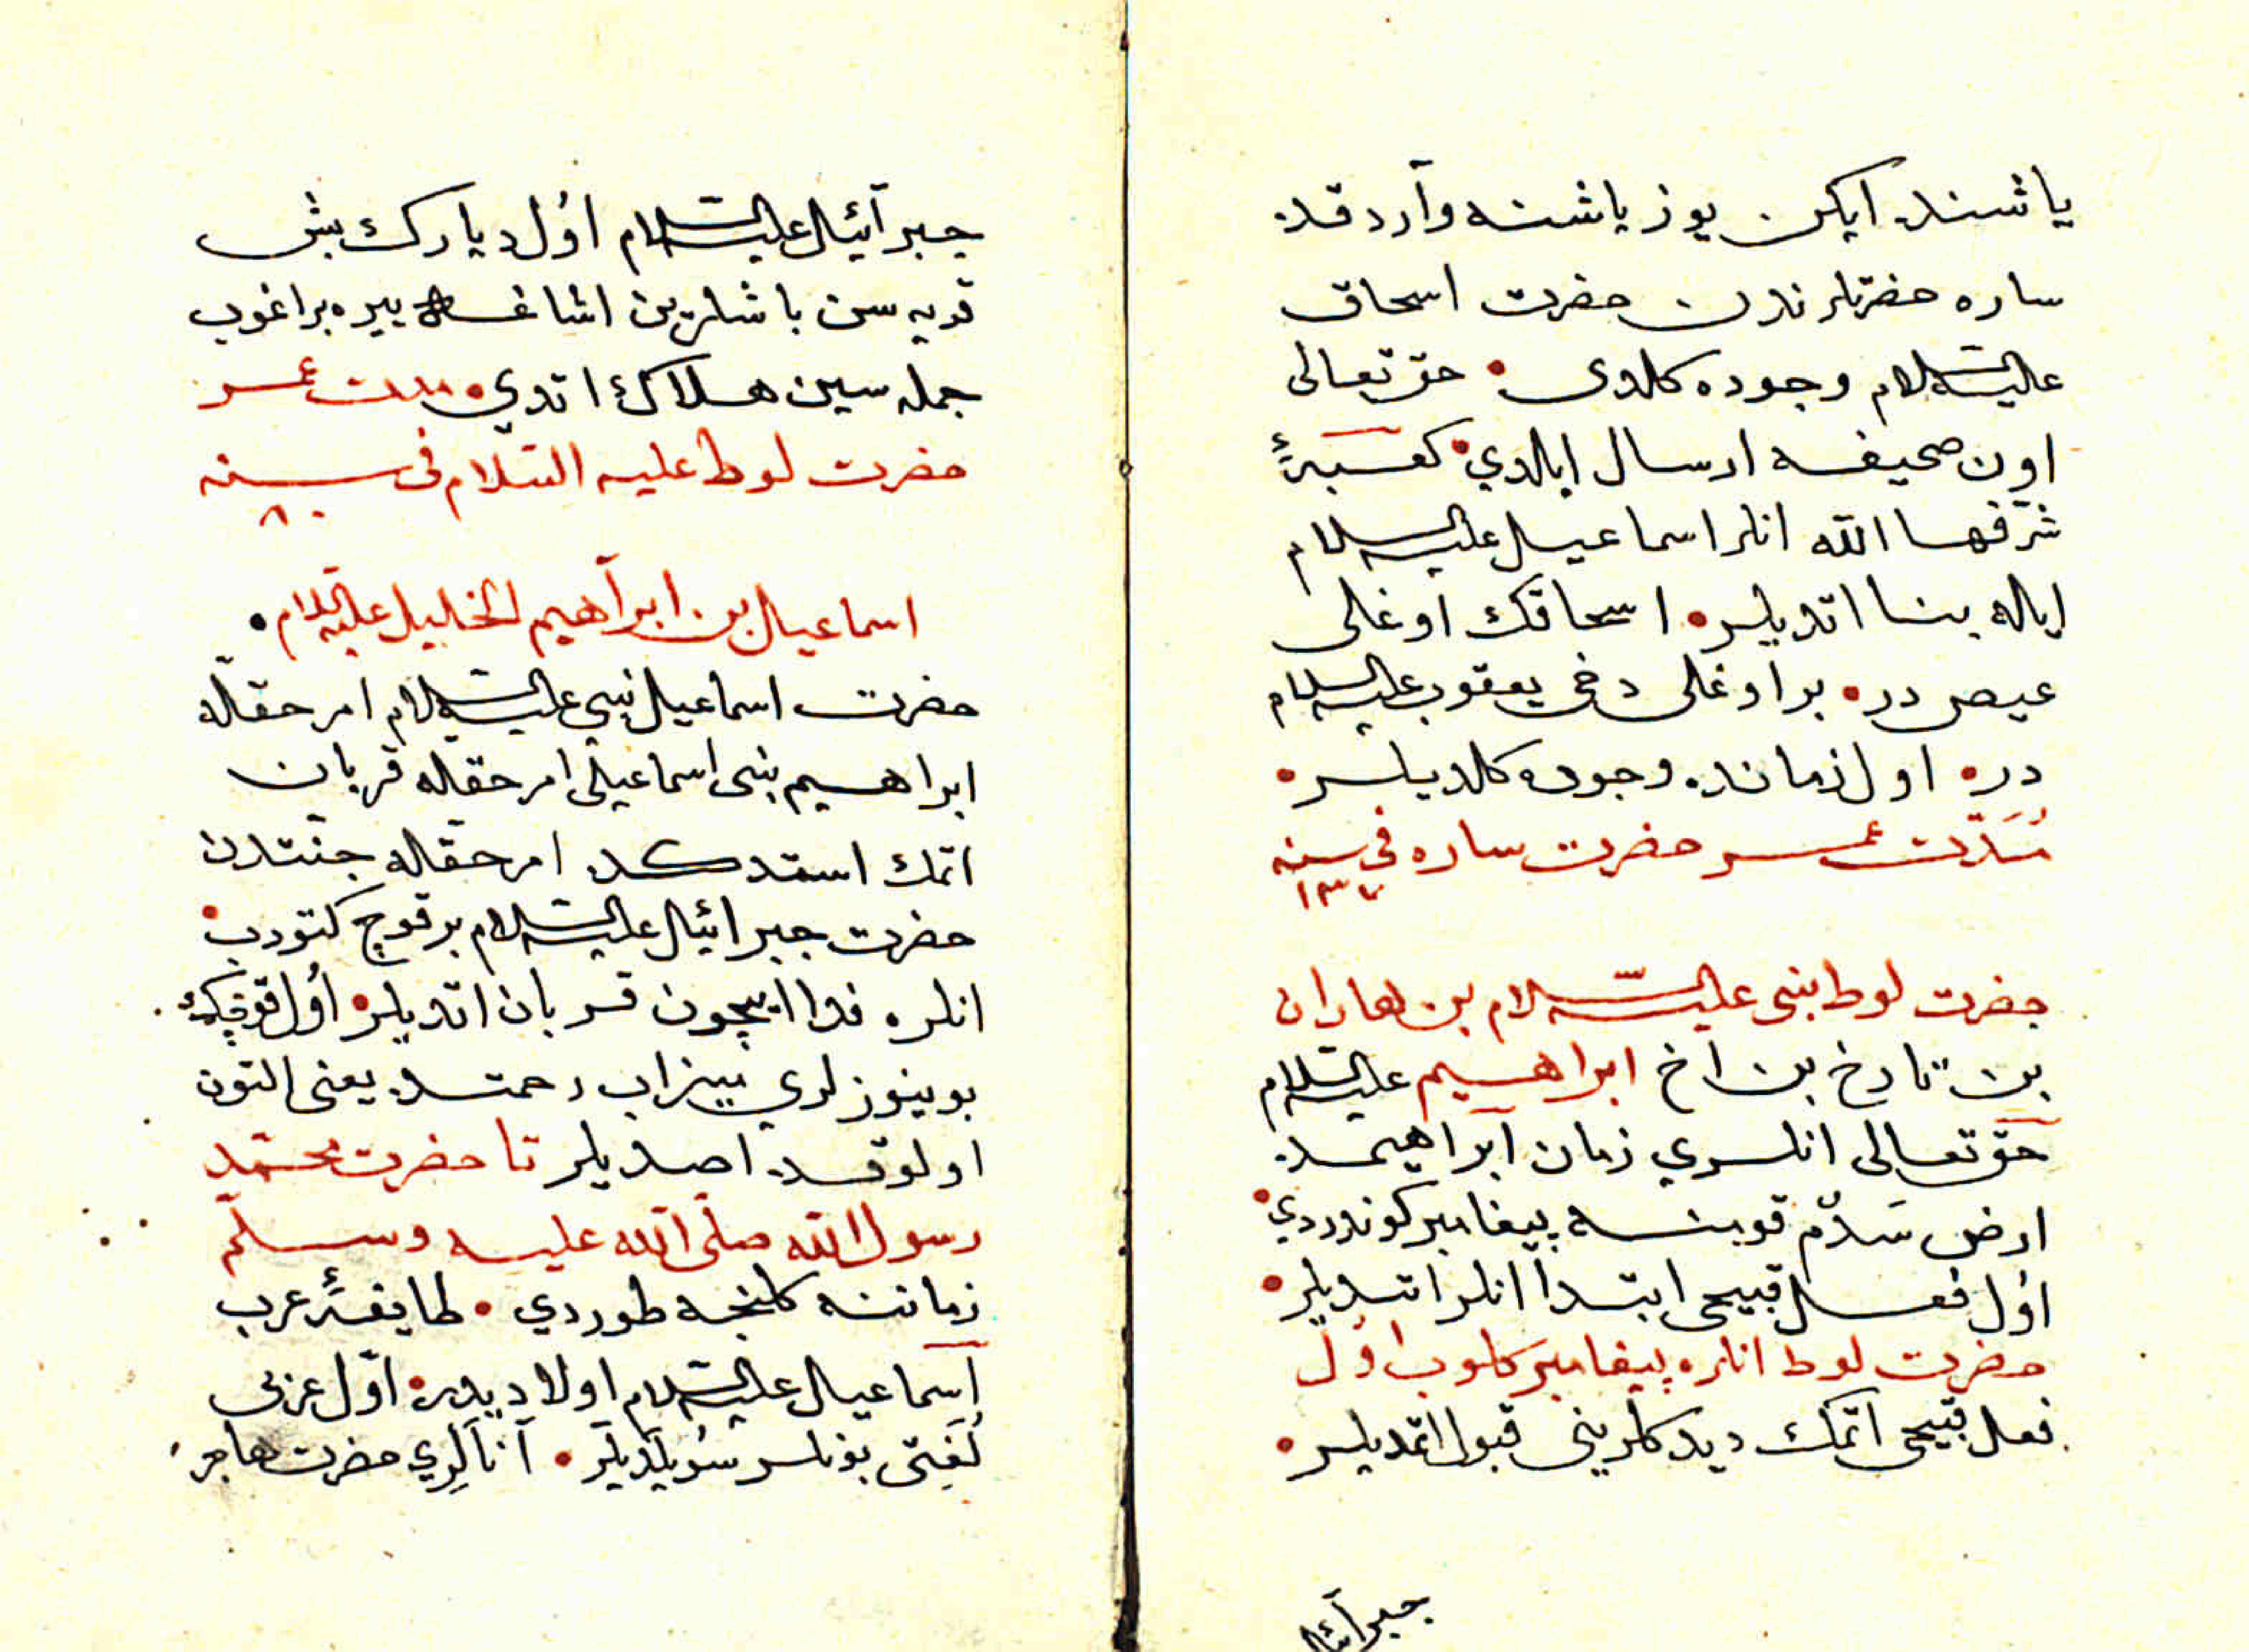 ياشنده ايكن يوز ياشنه وآردقده
ساره حضرتلرندن حضرت اسحاق
عليه السلام وجوده كلدى • حق تعالى
اون صحيفه ارسال ايلدي • كعبهٔ
شرّفها الله انلر اسماعيل عليه السلام
ايله بنا اتديلر • اسحاقك اوغلى
عيص در • بر اوغلى دخى يعقوب عليه السلام
در • اول زمانده وجوده كلديلر •
مُدّت عمر حضرت ساره فى سنه
١٣٧
حضرت لوط نبى عليه السّلام بن هاران
بن تارخ بن اخ ابراهيم عليه السلام
حقّ تعالى انلرى زمان ابراهيمده
ارض سَدُّم قومنه پيغامبر كوندردي •
اوُل فعل قبيحى ابتدا انلر اتديلر •
حضرت لوط انلره پيغامبر كلوب اوُل
فعل قبيحى اتمك ديدكلرينى قبول اتمديلر •
جبرآئيل
جبرآئيل عليه السّلام اوُل ديارك بش
قويه سن باشلرين اشاغه ييره براغوب
جمله سين هلاك اتدي • مدت عمر
حضرت لوط عليه السّلام فى سنه
٨٠
اسماعيل بن ابرآهيم الخليل عليه السلام •
حضرت اسماعيل نبى عليه السّلام امر حقله
ابراهيم نبى اسماعيلى امر حقله قربان
اتمك استدكده امر حقله جنتدن
حضرت جبرائيل عليه السّلام بر قوج كتورب •
انلره فدا ايچون قربان اتديلر • اوُل قوچك
بوينوزلري ميزاب رحمتده يعنى التون
اولوقده اصديلر تا حضرت محمّد
رسول الله صلّى الله عليه وسلّم
زماننه كلنجه طوردي • طايفهٔ عرب
اسماعيل عليه السّلام اولاديدر • اوّل عربى
لُغتى بونلر سُويلَديلَر • آنالَرِي حضرت هاجر